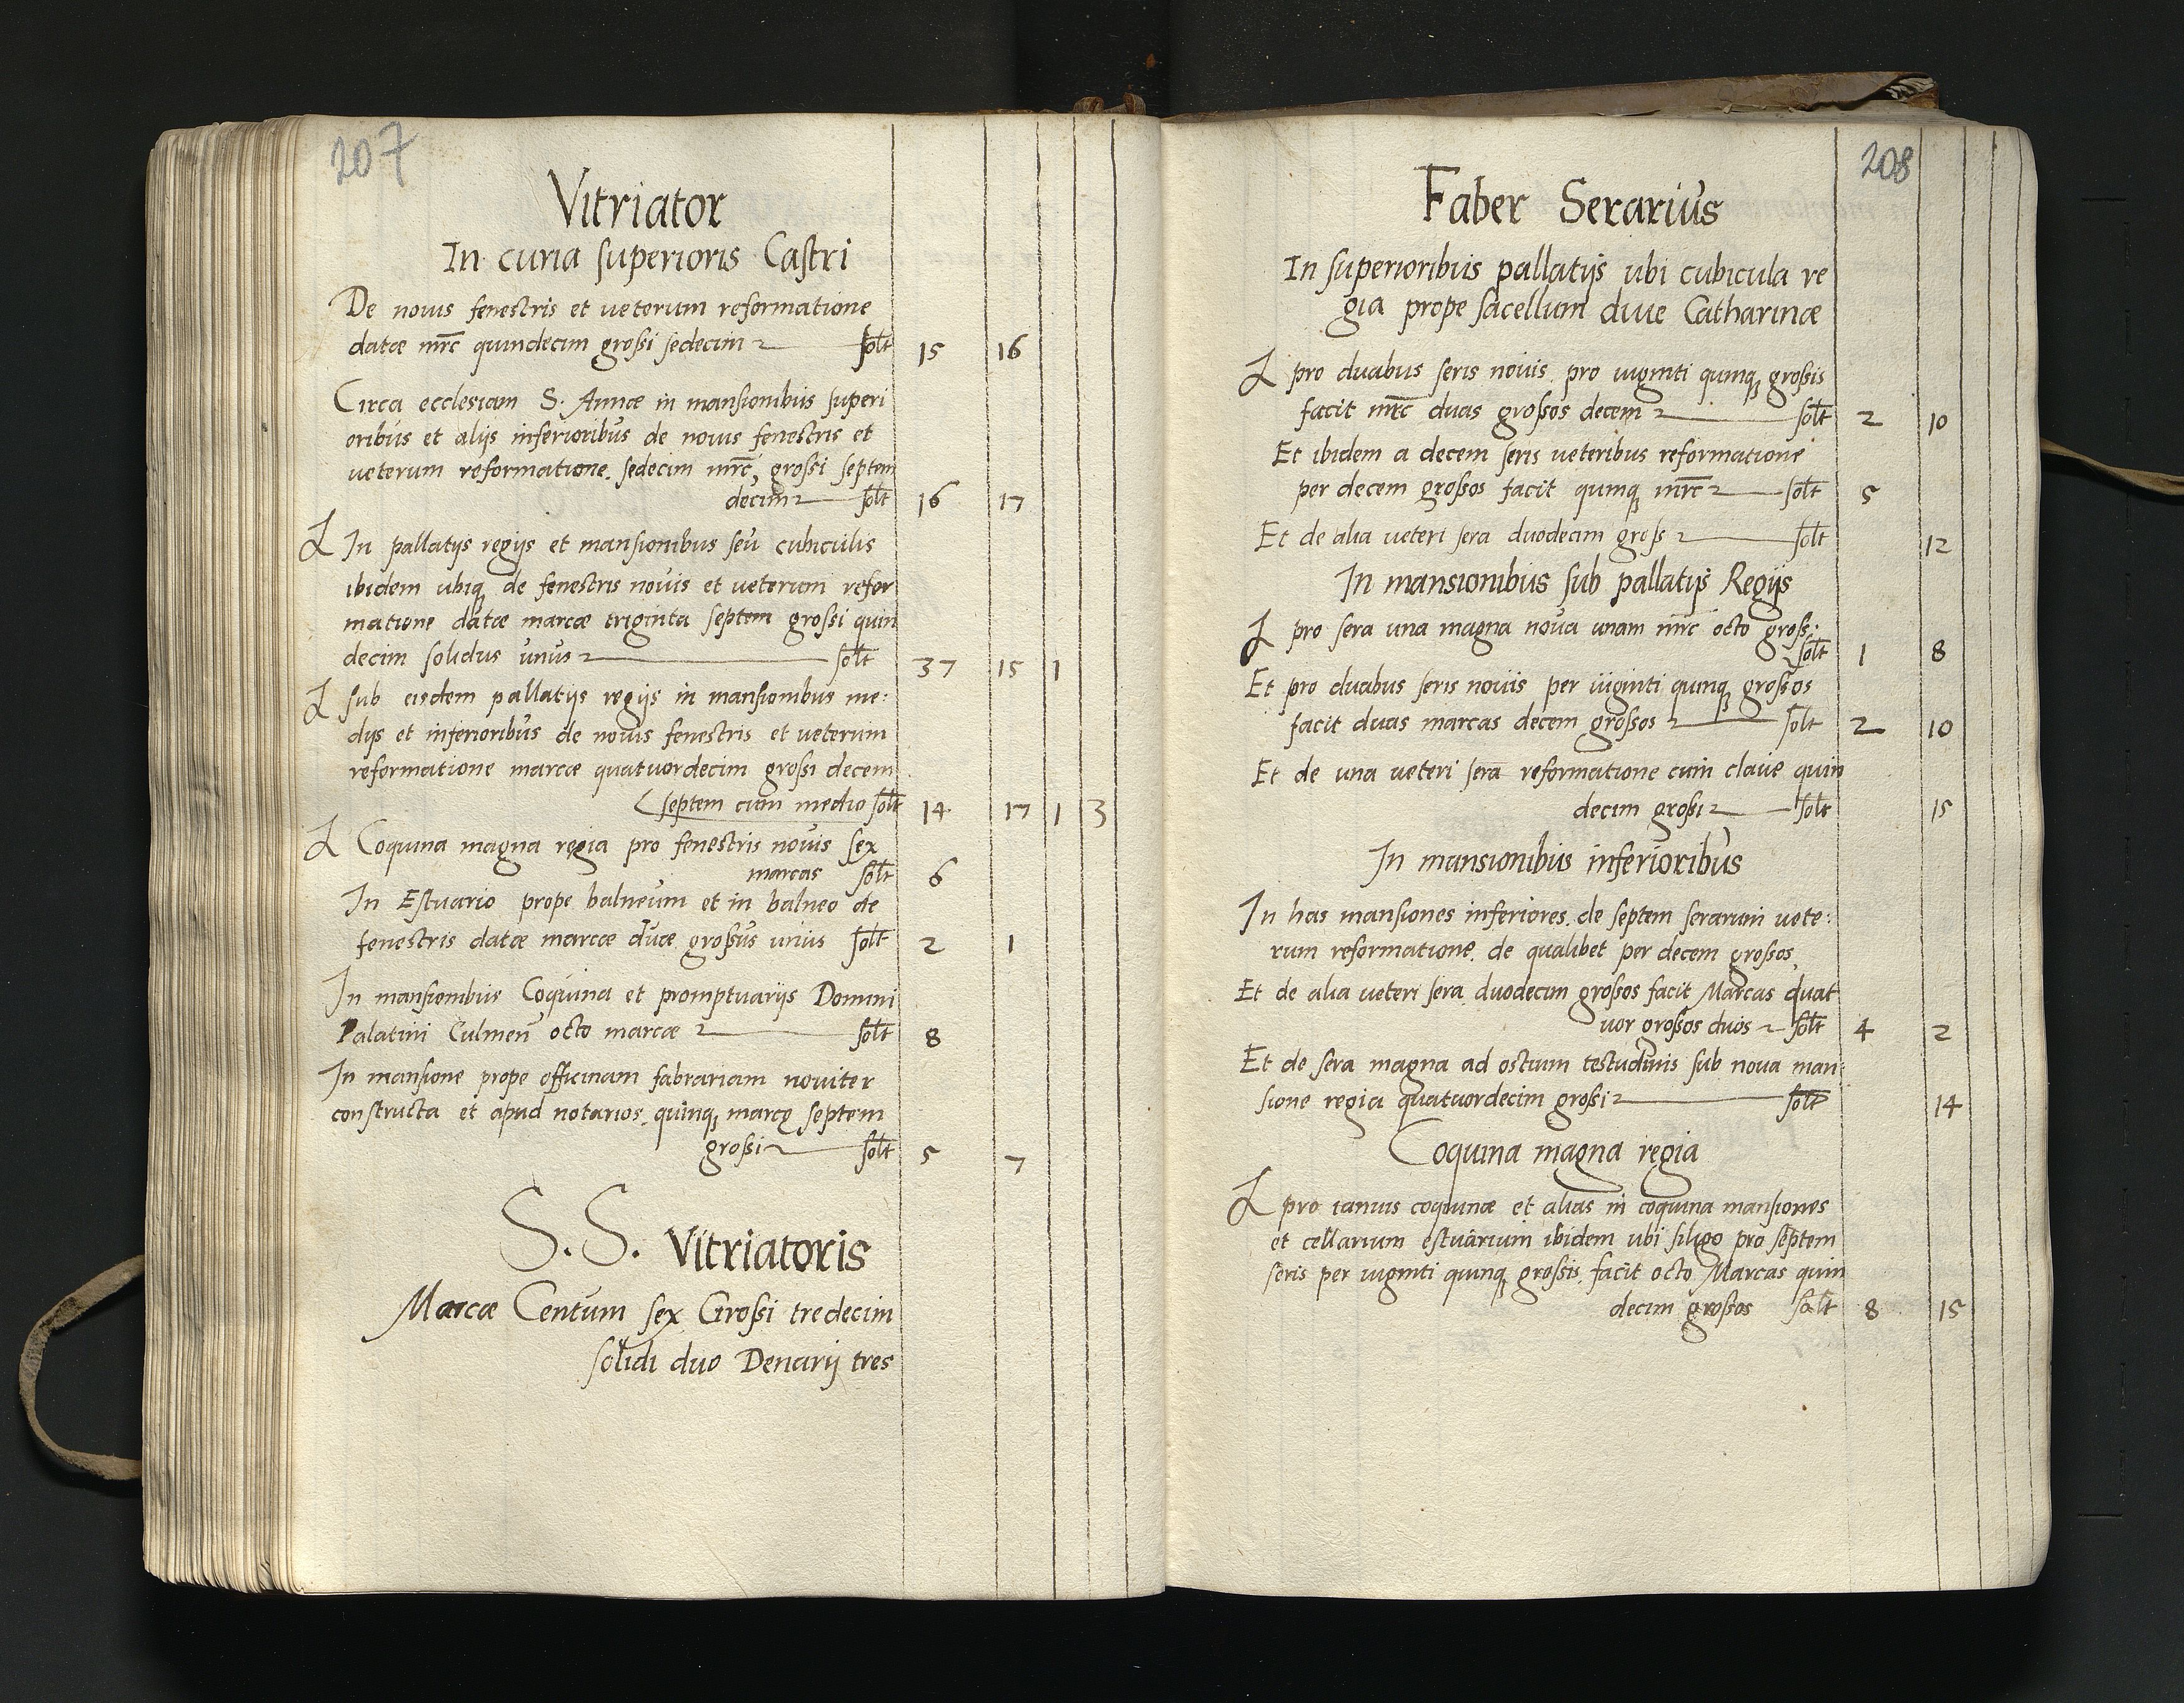 207
Vitriator
In curia superioris Castri
De nouis fenestris et ueterum reformatione
datæ mrc quindecim grossi sedecim solt 15 16
Circa ecclesiam S. Annæ in mansionibus superi
oribus et alijs inferioribus de nouis fenestris et
ueterum reformatione. sedecim mrc, grossi septem
decim solt 16 17
In pallatijs regijs et mansionibus seu cubiculis
ibidem ubiq de fenestris nouis et ueterum refor
matione datæ marcæ triginta septem grossi quin
decim solidus unus solt 37 15 1
sub eisdem pallatijs regijs in mansionibus me:
dijs et inferioribus de nouis fenestris et ueterum
reformatione marcæ quatuordecim grossi decem
septem cum medio solt 14 17 1 3
Coquina magna regia pro fenestris nouis sex
marcas solt 6
In Estuario prope balneum et in balneo de
fenestris datæ marcæ duæ grossus unus solt 2 1
In mansionibus Coquina et promptuarijs Domini
Palatini Culmen octo marcæ solt 8
In mansione prope officinam fabrariam nouiter
constructa et apud notarios. quinq marcę septem
grossi solt 5 7
S. S. Vitriatoris
Marcæ Centum sex Grossi tredecim
solidi duo Denarij tres
208
Faber Serarius
In superioribus pallatijs ubi cubicula re
gia prope sacellum diue Catharinæ
pro duabus seris nouis. pro uiginti quinq grossis
facit mrc duas grossos decem solt 2 10
Et ibidem a decem seris ueteribus reformatione
per decem grossos facit quinq mrc solt 5
Et de alia ueteri sera duodecim gross solt 12
In mansionibus sub pallatijs Regijs
pro sera una magna noua unam mrc octo gross:
solt 1 8
Et pro duabus seris nouis per uiginti quinq grossos
facit duas marcas decem grossos solt 2 10
Et de una ueteri sera reformatione cum claue quin
decim grossi solt 15
In mansionibus inferioribus
In has mansiones inferiores. de septem serarum uete:
rum reformatione. de qualibet per decem grossos,
Et de alia ueteri sera duodecim grossos facit Marcas quat
uor grossos duos solt 4 2
Et de sera magna ad ostium testudinis sub noua man:
sione regia quatuordecim grossi solt 14
Coquina magna regia
pro ianuis coquinæ et alias in coquina mansiones
et cellarium estuarium ibidem ubi siligo pro septem
seris per uiginti quinq grossis. facit octo Marcas quin
decim grossos solt 8 15